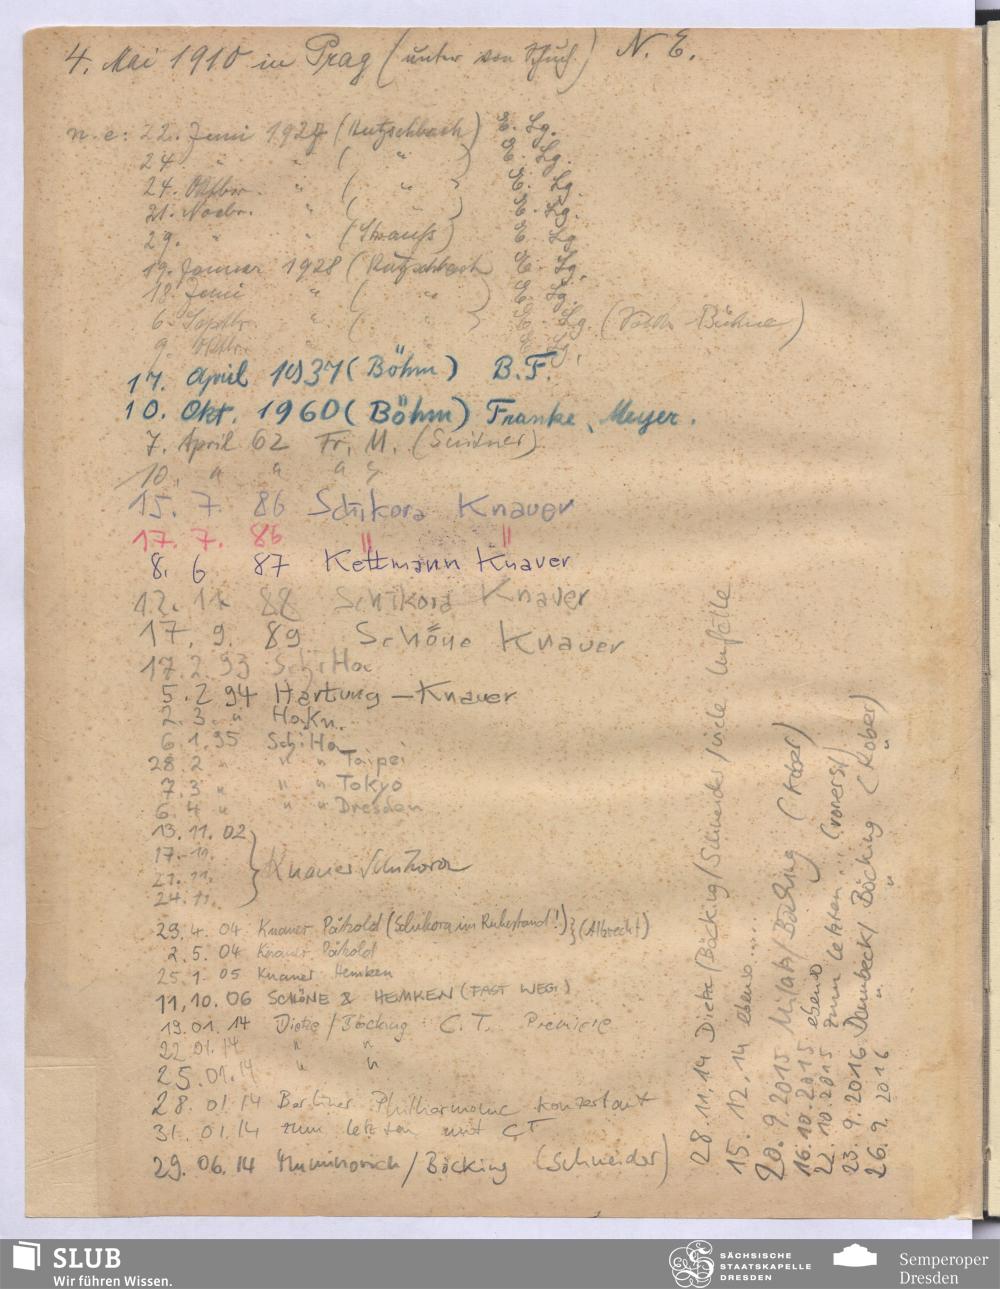 4. Mai 1910 in Prag (unter von Schuch) N. E.
n. e: 22. Juni 1927 (Kutzschbach) E. Lg.
24. " " ( " ) E. Lg.
24. Oktbr. " ( " ) E. Lg.
21. Novbr. " ( ) E. Lg.
29. " " (Strauss) E. Lg.
19. Januar 1928 (Kutzschbach) E. Lg.
18. Juni " ( " ) E. Lg.
6. Septbr. " ( " ) E. Lg. (Bühne)
9. Oktbr.
17. April 1937 (Böhm) B. F.
10. Okt. 1960 (Böhm) Franke, Meyer.
7. April 62 Fr, M. (Suitner)
10. " " " "
15. 7. 86 Schikora Knauer
17. 7. 86 " "
8. 6 87 Kettmann Knauer
12. 11. 88 Schikora Knauer
17. 9. 89 Schöne Knauer
17. 2. 93 Schi Ha
5. 2 94 Hartung – Knauer
2. 3. " Ha.Kn.
6. 1. 95 Schi Ha
28. 2 " " " Taipei
7. 3 " " " Tokyo
6. 4 " " " Dresden
13. 11. 02
17. 11.
Knauer Schikora
21. 11.
24. 11.
29. 4. 04 Knauer Pätzold (Schikora im Ruhestand!) (Albrecht)
2. 5. 04 Knauer Pätzold
25. 1. 05 Knauer Hemken
11, 10. 06 SCHÖNE & HEMKEN (FAST WEG!)
19. 01. 14 Dietze / Böcking C. T. Premiere
22. 01. 14 " "
25. 01. 14 " "
28. 01 14 Berliner Philharmonie konzertant
31. 01 14 zum letzten mit CT
29. 06. 14 / Böcking (Schneider)
28. 11. 14 Dietze / Böcking / Schneider / viele Unfälle
15. 12, 14 ebenso.....
20. 9. 2015 / Böcking (Kober)
16. 10. 2015 ebenso
22. 10. 2015 zum letzten.. (vorerst)
23. 9. 2016 Dannbeck / Böcking (Kober)
26. 9. 2016 " " "
SLUB
Wir führen Wissen.
SÄCHSISCHE
STAATSKAPELLE
DRESDEN
Semperoper
Dresden